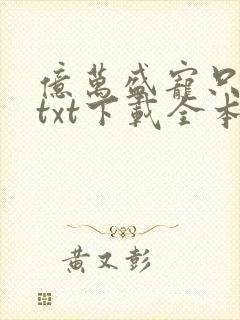 億萬盛寵只
txt下載全本
黃又彭